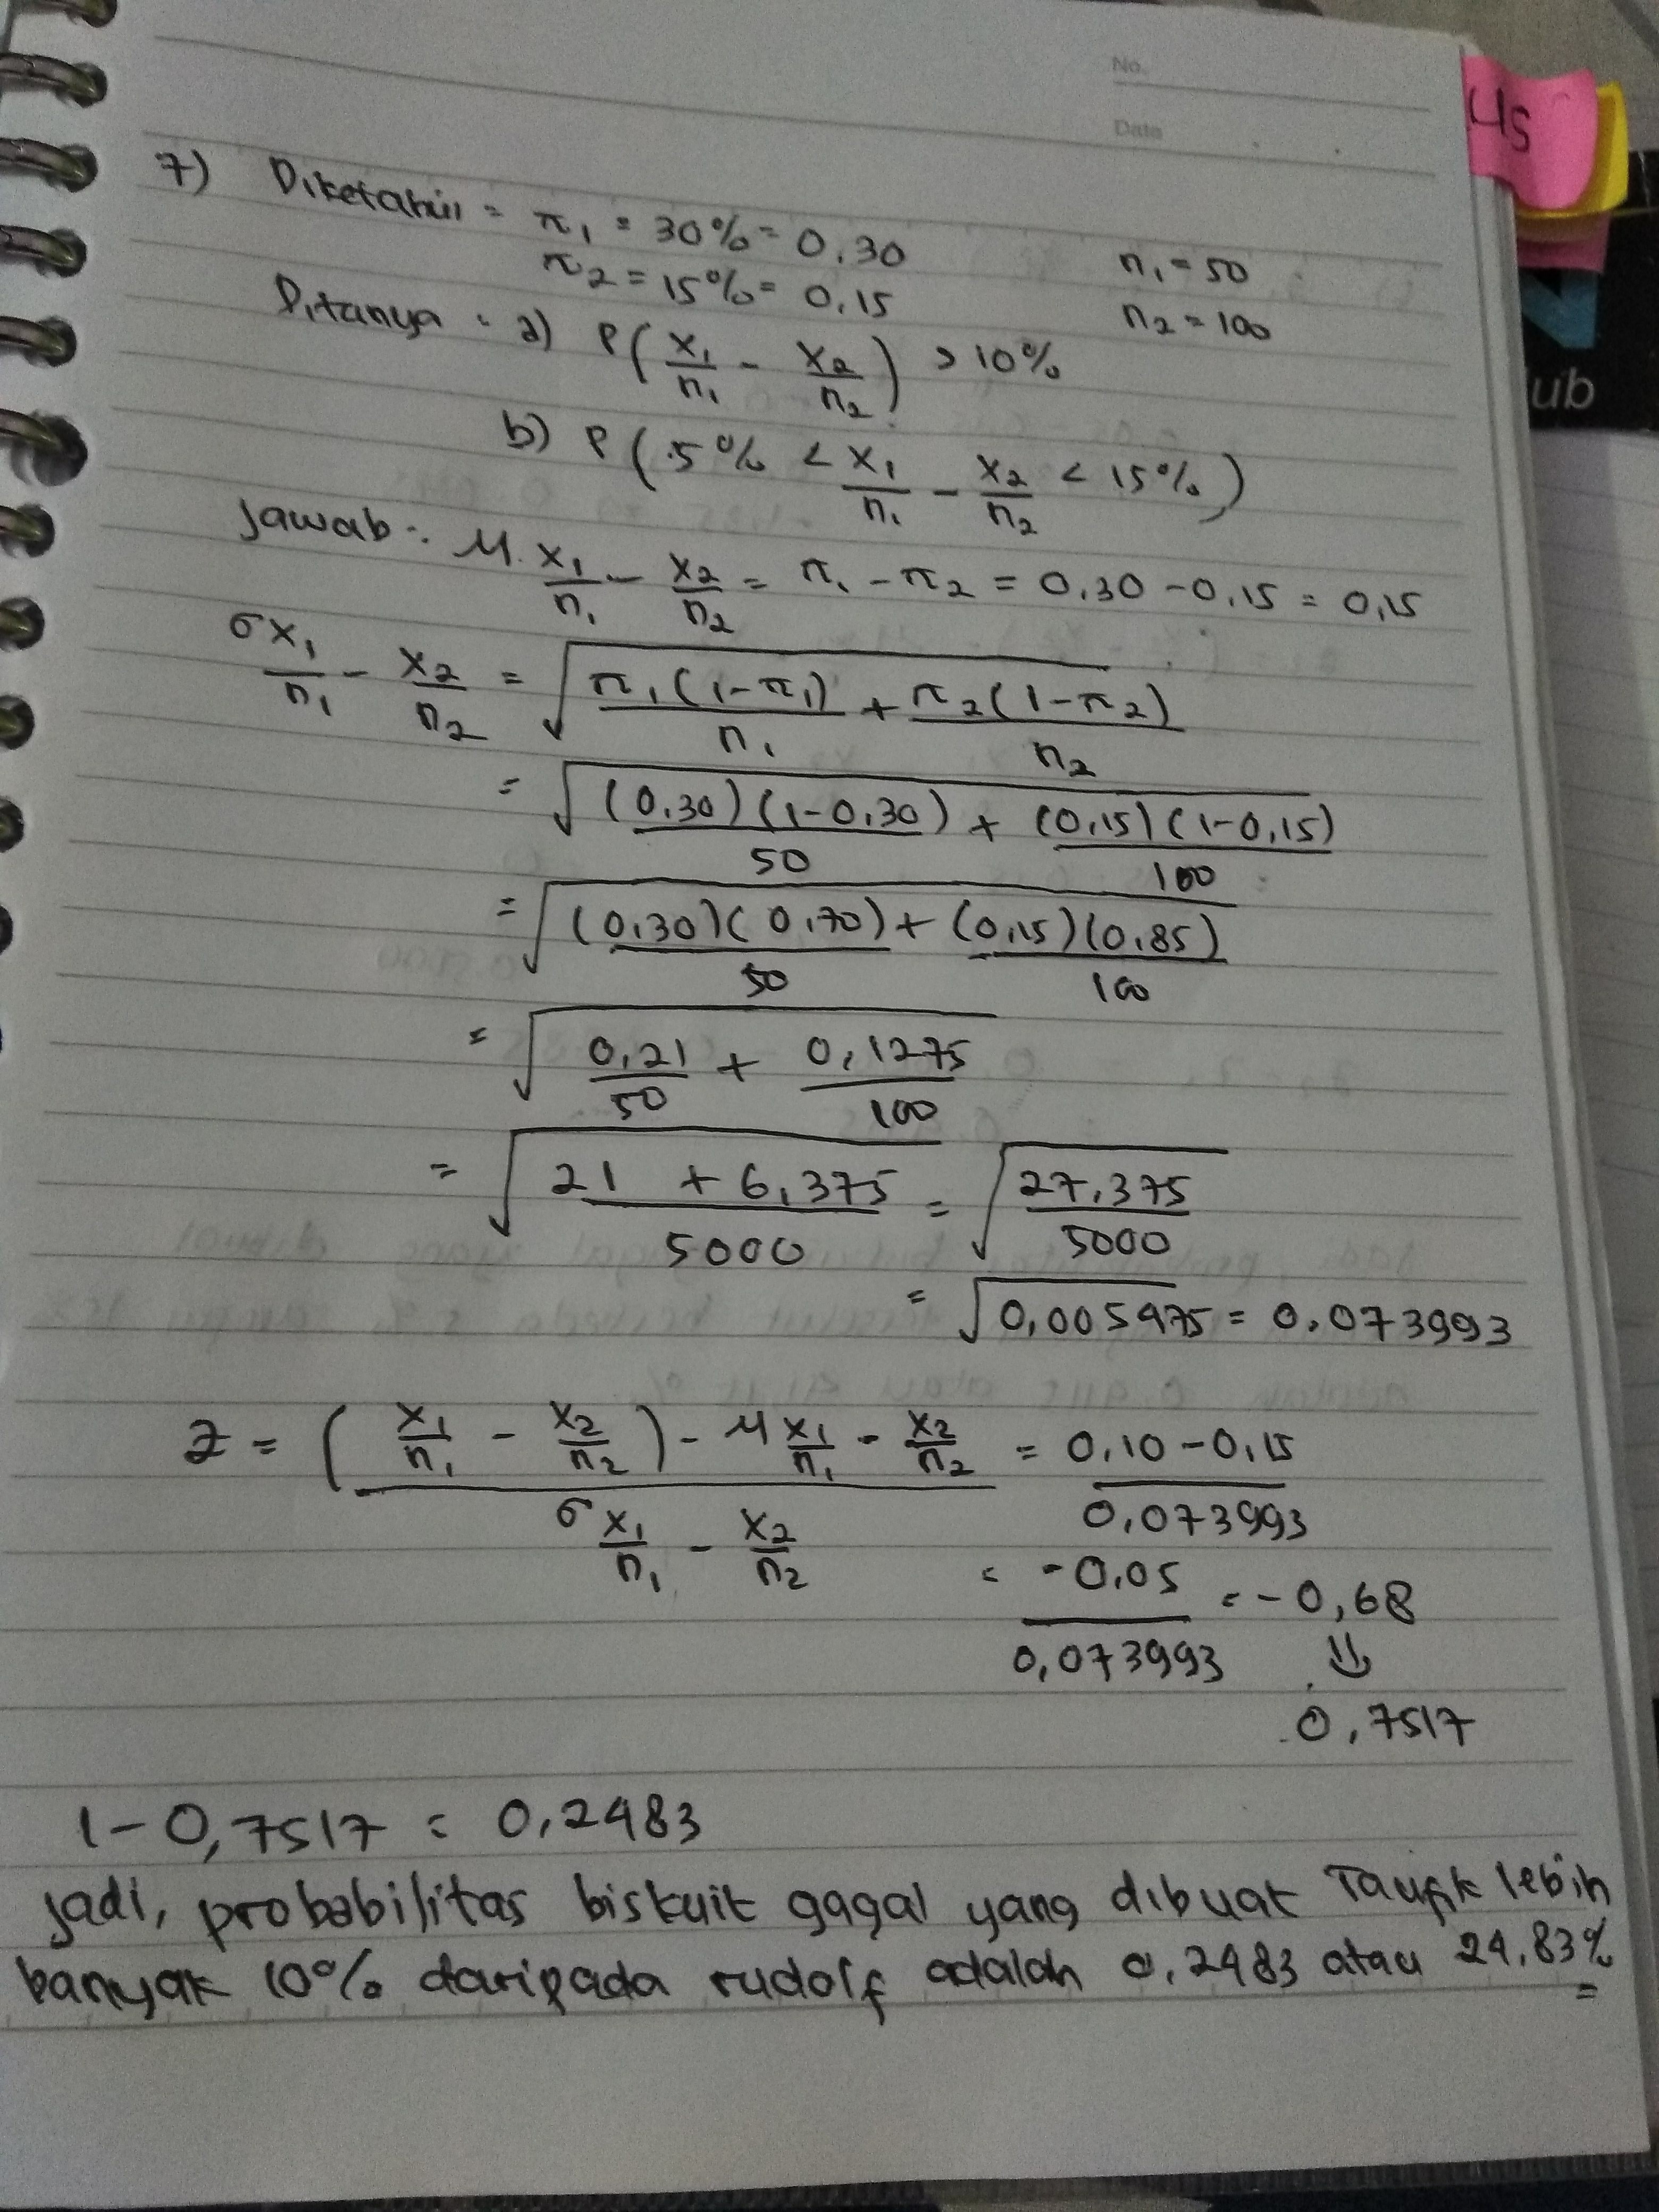 No.
Date
45
ub
7) Diketahui = π₁ = 30% = 0,30 n₁ = 50
π₂ = 15% = 0,15 n₂ = 100
Ditanya : a) P(x₁/n₁ - x₂/n₂) > 10%
b) P(5% < x₁/n₁ - x₂/n₂ < 15%)
Jawab : μ x₁/n₁ - x₂/n₂ = π₁ - π₂ = 0,30 - 0,15 = 0,15
σ x₁/n₁ - x₂/n₂ = √(π₁(1-π₁)/n₁ + π₂(1-π₂)/n₂)
= √((0,30)(1-0,30)/50 + (0,15)(1-0,15)/100)
= √((0,30)(0,70)/50 + (0,15)(0,85)/100)
= √(0,21/50 + 0,1275/100)
= √(21 + 6,375/5000) = √(27,375/5000)
= √0,005475 = 0,073993
z = (x₁/n₁ - x₂/n₂) - μ x₁/n₁ - x₂/n₂ / σ x₁/n₁ - x₂/n₂ = 0,10 - 0,15 / 0,073993
= -0,05 / 0,073993 = -0,68
⇓
0,7517
1 - 0,7517 = 0,2483
Jadi, probabilitas biskuit gagal yang dibuat Taufik lebih
banyak 10% daripada rudolf adalah 0,2483 atau 24,83%